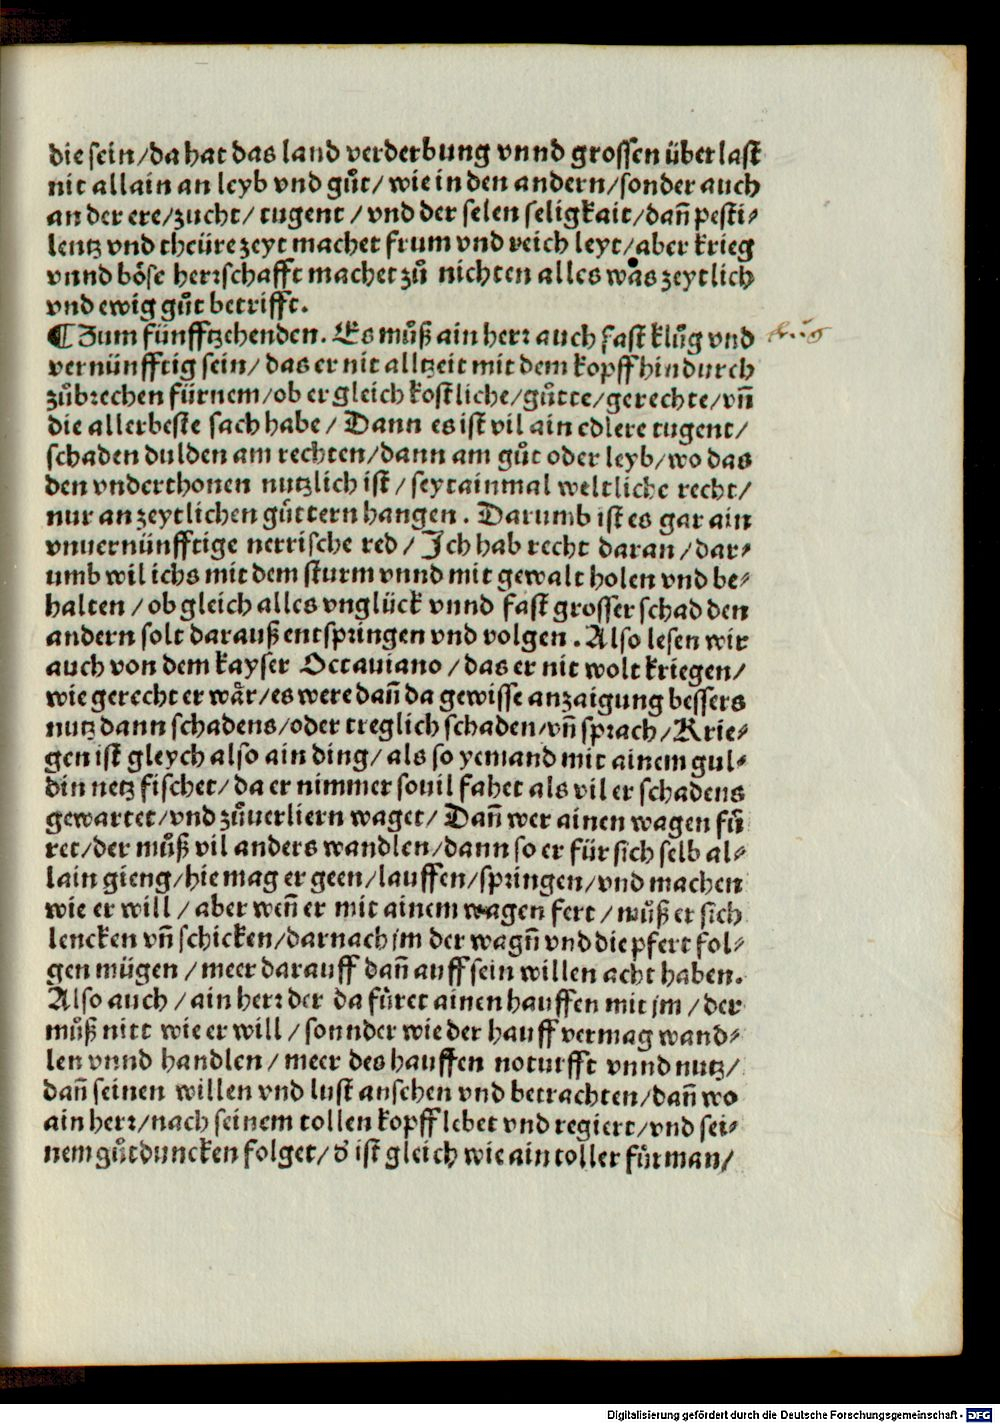 die sein/da hat das land verderbung vnnd grossen überlast
nit allain an leyb vnd gůt/wie in den andern/sonder auch
an der ere/zucht/tugent/vnd der selen seligkait/dañ pesti⸗
lentz vnd theüre zeyt machet frum vnd reich leyt/aber krieg
vnnd böse herꝛschafft machet zů nichten alles was zeytlich
vnd ewig gůt betrifft.
¶ Zum fünfftzehenden. Es můß ain herꝛ auch fast klůg vnd
vernünfftig sein/das er nit alltzeit mit dem kopff hindurch
zůbꝛechen fürnem/ob er gleich kostliche/gůtte/gerechte/vñ
die allerbeste sach habe/Dann es ist vil ain edlere tugent/
schaden dulden am rechten/dann am gůt oder leyb/wo das
den vnderthonen nutzlich ist/seytainmal weltliche recht/
nur an zeytlichen gůttern hangen. Darumb ist es gar ain
vnuernünfftige nerrische red/Ich hab recht daran/dar⸗
umb wil ichs mit dem sturm vnnd mit gewalt holen vnd be⸗
halten/ob gleich alles vnglück vnnd fast grosser schad den
andern solt darauß entspꝛingen vnd volgen. Also lesen wir
auch von dem kayser Octauiano/das er nit wolt kriegen/
wie gerecht er wår/es were dañ da gewisse anzaigung bessers
nutz dann schadens/oder treglich schaden/vñ spꝛach/Krie⸗
gen ist gleych also ain ding/als so yemand mit ainem gul⸗
din netz fischet/da er nimmer souil fahet als vil er schadens
gewartet/vnd zůuerliern waget/Dañ wer ainen wagen fü
ret/der můß vil anders wandlen/dann so er für sich selb al⸗
lain gieng/hie mag er geen/lauffen/spꝛingen/vnd machen
wie er will/aber weñ er mit ainem wagen fert/můß er sich
lencken vñ schicken/darnach jm der wagñ vnd die pfert fol⸗
gen mügen/meer darauff dañ auff sein willen acht haben.
Also auch/ain herꝛ der da füret ainen hauffen mit jm/der
můß nitt wie er will/sonnder wie der hauff vermag wand⸗
len vnnd handlen/meer des hauffen noturfft vnnd nutz/
dañ seinen willen vnd lust ansehen vnd betrachten/dañ wo
ain herꝛ/nach seinem tollen kopff lebet vnd regiert/vnd sei⸗
nem gůtduncken folget/d' ist gleich wie ain toller fürman/
Digitalisierung gefördert durch die Deutsche Forschungsgemeinschaft - DFG